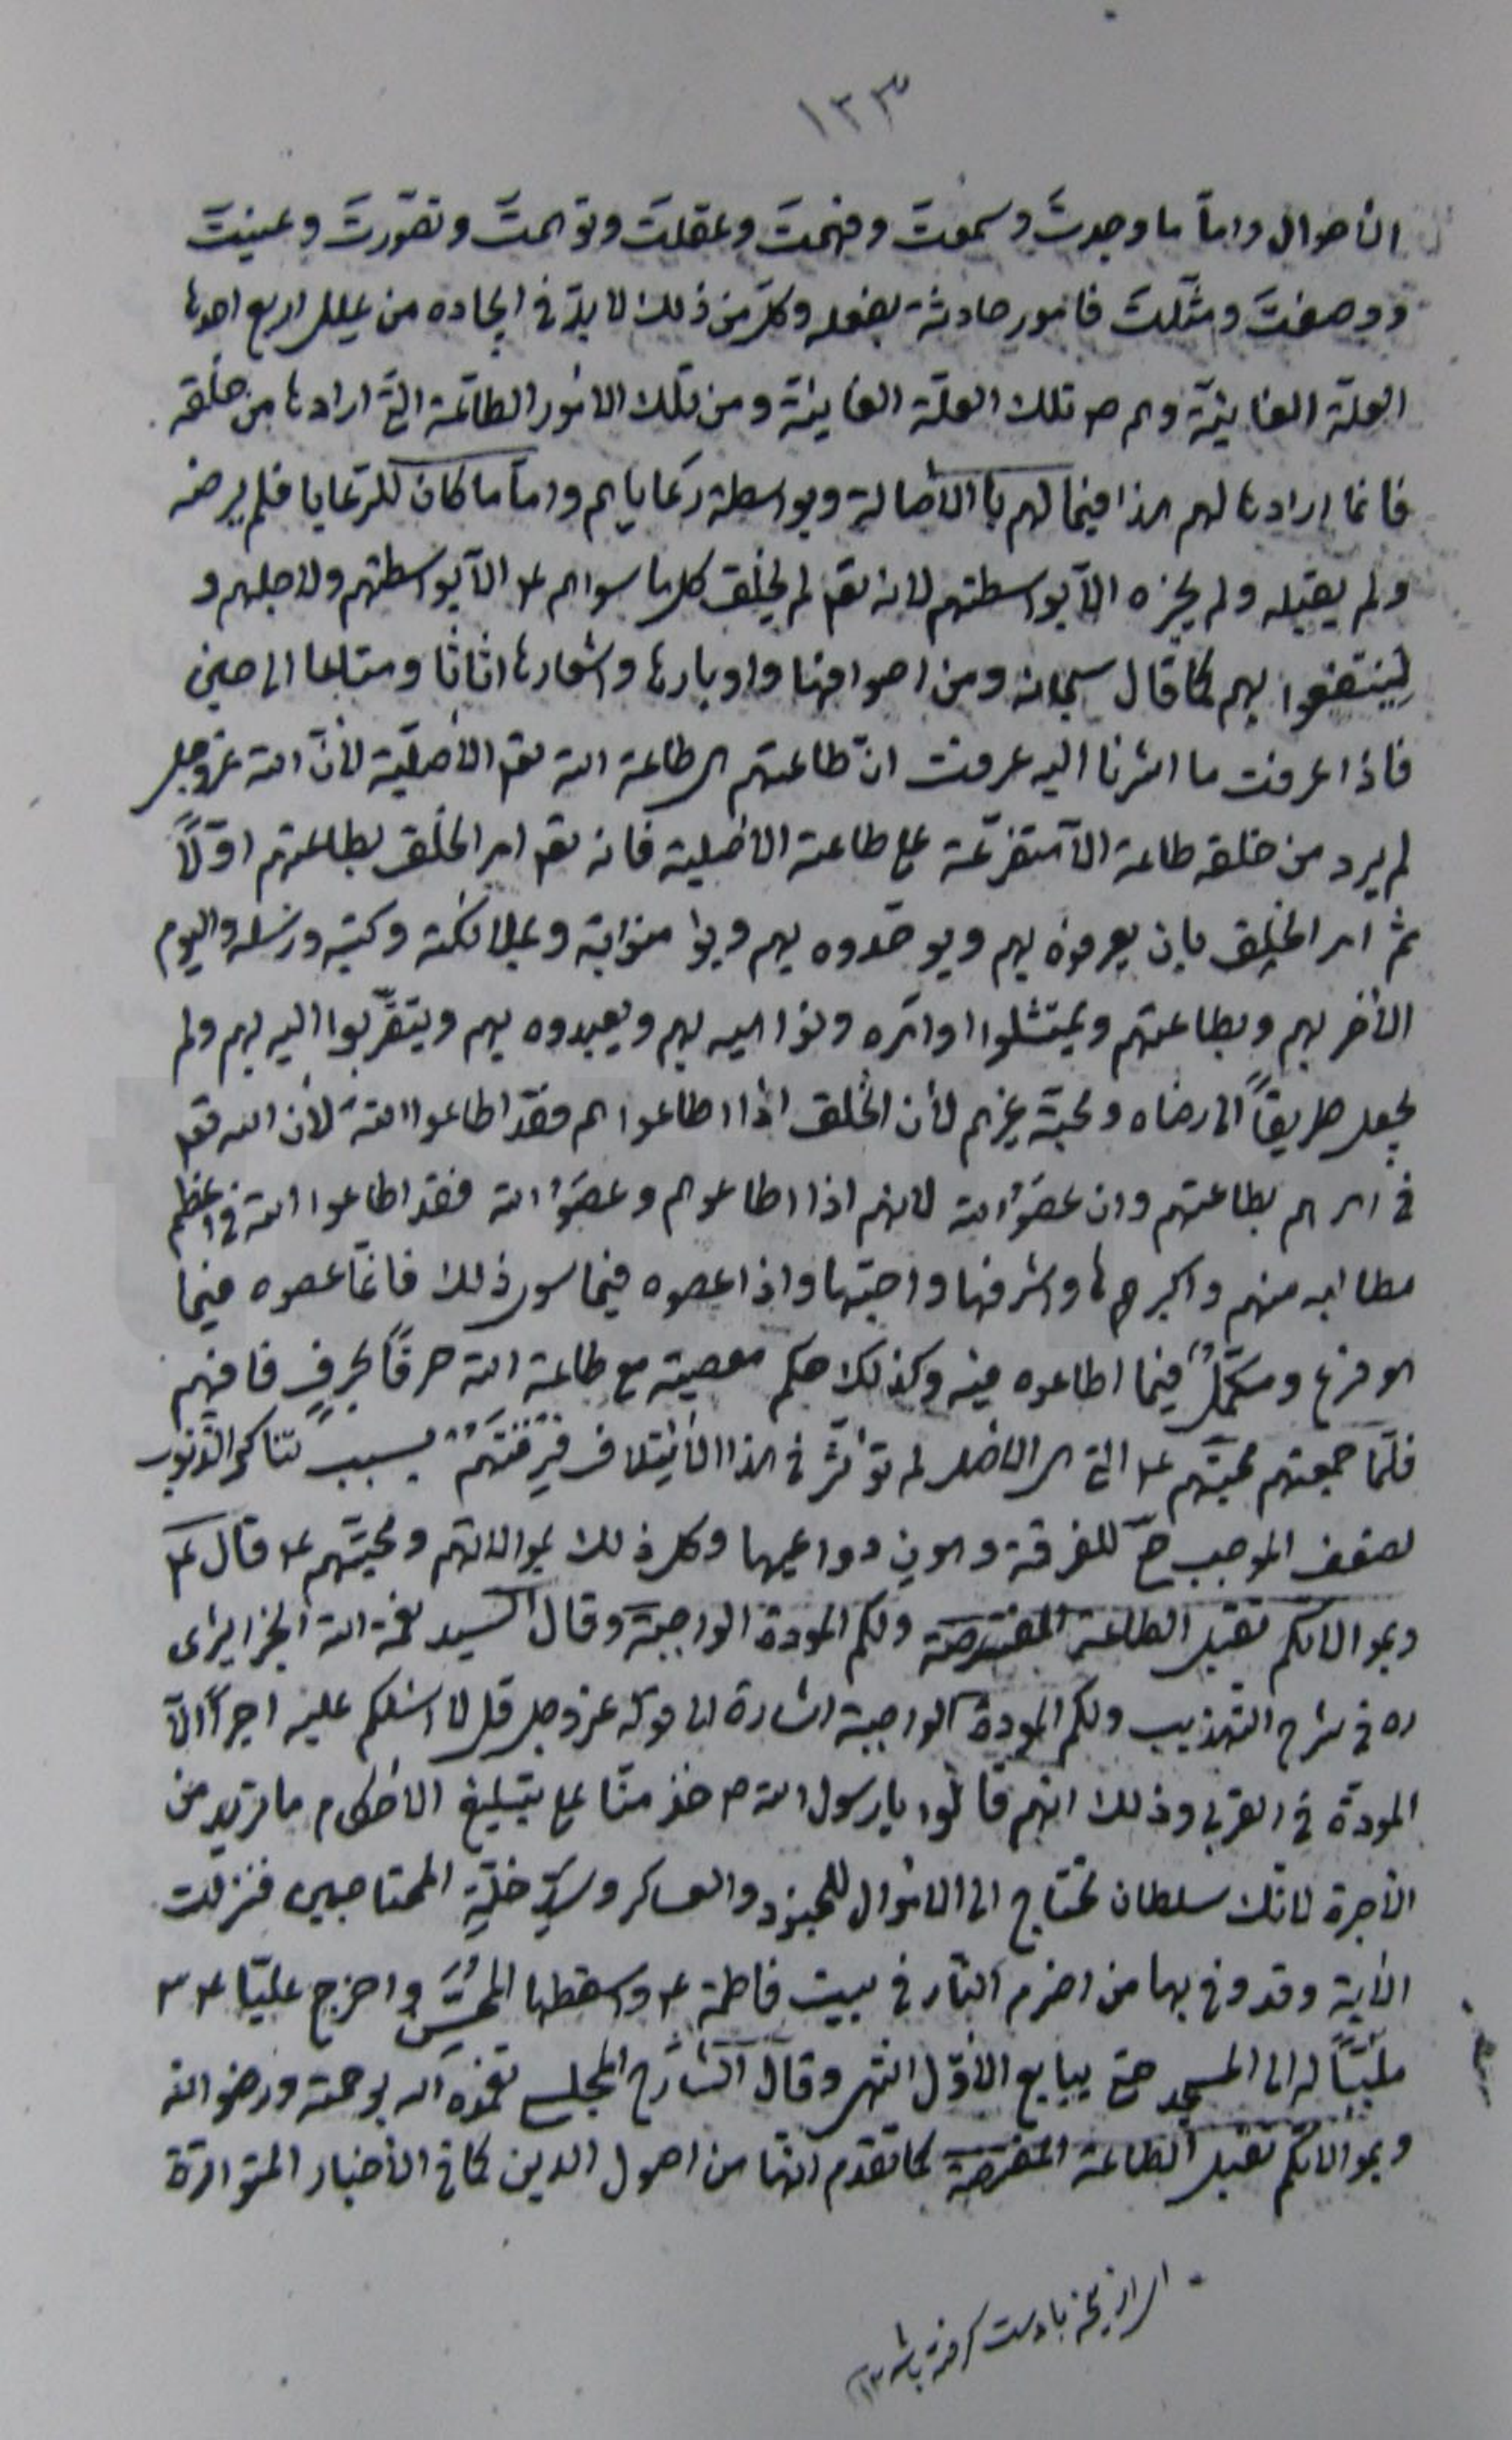 ١٣٣
الأحوال واما ما وجدت وسمعت وفهمت وعقلت وتوهمت وتصورت وعنيت
ووصفت ومثّلت فامور حادثة بفعله وكل من ذلك لا بدّ في ايجاده من علل اربع احدها
العلة الغائية وهم ص تلك العلة الغائية ومن تلك الامور الطاعة التي ارادها من خلقه
فانما ارادها لهم هذا فيما لهم بالأصالة وبواسطة رعاياهم واما ما كان للرعايا فلم يرضه
ولم يقبله ولم يجزه الّا بواسطتهم لانه تعـ لم يخلق كل ما سواهم ع الّا بواسطتهم ولاجلهم و
لينتفعوا بهم كما قال سبحانه ومن اصوافها واوبارها واشعارها اثاثا ومتاعا الى حين
فاذا عرفت ما اشرنا اليه عرفت انّ طاعتهم هي طاعة الله تعـ الأصليّة لأنّ الله عزوجل
لم يرد من خلقه طاعة الّا متفرّعة على طاعته الأصلية فانه تعـ امر الخلق بطاعتهم اوّلاً
ثم امر الخلق بان يعرفوه بهم ويوحّدوه بهم ويؤمنوا به وبملائكته وكتبه ورسله واليوم
الأخر بهم وبطاعتهم ويمتثلوا اوامره ونواهيه بهم ويعبدوه بهم ويتقرّبوا اليه بهم ولم
يجعل طريقاً الى رضاه ومحبته غيرهم لأن الخلق اذا اطاعوهم فقد اطاعوا الله لأن الله تعـ
في امرهم بطاعتهم وان عصوا الله لانهم اذا اطاعوهم وعصوا الله فقد اطاعوا الله في اعظم
مطالبه منهم واكبرها واشرفها واحبّها واذا عصوه فيما سوى ذلك فانّما عصوه فيما
هو فرع ومكمّل فيما اطاعوه فيه وكذلك حكم معصيته مع طاعة الله حرفاً بحرفٍ فافهم
فلمّا جمعتهم محبّتهم ع التي هي الاصل لم تؤثّر في هذا الائتلاف فرقتهم بسبب تناكر الذنوب
لضعف الموجب ح للفرقة وهون دواعيها وكل ذلك بموالاتهم ومحبّتهم ع قال ع
وبموالاتكم تقبل الطاعة المفترضة ولكم المودة الواجبة وقال السيد نعمة الله الجزايرى
ره في شرح التهذيب ولكم المودة الواجبة اشارة الى قوله عزوجل قل لا اسئلكم عليه اجراً الّا
المودّة في القربى وذلك انهم قالوا يا رسول الله ص خذ منّا على تبليغ الأحكام ما تريد من
الأجرة لانك سلطان تحتاج الى الاموال للجنود والعساكر وسدّ خلّة المحتاجين فنزلت
الأية وقد وفى بها من اضرم النار في بيت فاطمة ع واسقطها المحسن واخرج عليّا ع
ملبّباً له الى المسجد حتى يبايع الأوّل انتهى وقال الشارح المجلسي تغمّده الله برحمته ورضوانه
وبموالاتكم تقبل الطاعة المفترضة كما تقدم انّها من اصول الدين كما في الأخبار المتواترة